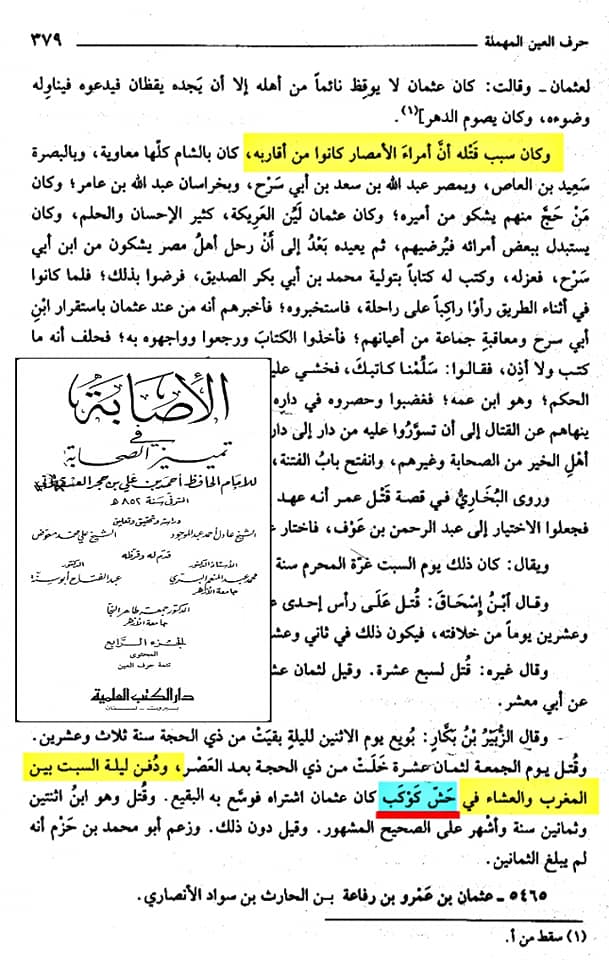 حرف العين المهملة ٣٧٩
لعثمان - وقالت: كان عثمان لا يوقِظ نائماً من أهله إلا أن يَجده يقظان فيدعوه فيناوله
وضوءه، وكان يصوم الدهر](١).
وكان سبب قَتْله أنَّ أمراءَ الأمصار كانوا من أقاربه، كان بالشام كلّها معاوية، وبالبصرة
سَعِيد بن العاص، وبمصر عبد الله بن سعد بن أبي سَرْح، وبخراسان عبد الله بن عامر؛ وكان
مَنْ حَجَّ منهم يشكو من أميره؛ وكان عثمان لَيِّن العَرِيكة، كثير الإحسان والحلم، وكان
يستبدل ببعض أمرائه فيُرضيهم، ثم يعيده بَعْدُ إلى أَنْ رحل أهلُ مصر يشكون من ابن أبي
سَرْح، فعزله، وكتب له كتاباً بتولية محمد بن أبي بكر الصديق، فرضوا بذلك؛ فلما كانوا
في أثناء الطريق رأوْا راكباً على راحلة، فاستخبروه؛ فأخبرهم أنه من عند عثمان باستقرار ابْنِ
أبي سرح ومعاقبةِ جماعة من أعيانهم؛ فأخذوا الكتابَ ورجعوا وواجهوه به؛ فحلف أنه ما
كتب ولا أذِن، فقالوا: سَلِّمْنا كاتبكَ، فخشي عليه
الحكم؛ وهو ابن عمه؛ فغضبوا وحصروه في داره
ينهاهم عن القتال إلى أن تسوَّرُوا عليه من دار إلى دار
أهلِ الخير من الصحابة وغيرهم، وانفتح بابُ الفتنة،
وروى البُخَارِيُّ في قصة قَتْل عمر أنه عهد
فجعلوا الاختيار إلى عبد الرحمن بن عَوْف، فاختار
ويقال: كان ذلك يوم السبت غرّة المحرم سنة
وقال ابْنُ إِسْحَاقَ: قُتل عَلَى رأس إحدى
وعشرين يوماً من خلافته، فيكون ذلك في ثاني وعشر
وقال غيره: قُتل لسبع عشرة. وقيل لثمان
عن أبي معشر.
الإصابة
في
تمييز الصحابة
للإمام الحافظ أحمد بن علي بن حجر العسقلاني
المتوفى سنة ٨٥٢ هـ
دراسة وتحقيق وتعليق
الشيخ عادل أحمد عبد الموجود الشيخ علي محمد معوض
قدم له وقرظه
الأستاذ الدكتور الدكتور
محمد عبد المنعم البري عبد الفتاح أبو سنة
جامعة الأزهر
الدكتور جمعة طاهر النجار
جامعة الأزهر
الجزء الرابع
المحتوى
تتمة حرف العين
دار الكتب العلمية
بيروت - لبنان
وقال الزُّبَيْرُ بْنُ بَكَّارٍ: بُويع يوم الاثنين لليلةٍ بقيَتْ من ذي الحجة سنة ثلاث وعشرين.
وقُتل يوم الجمعة لثمان عشرة خَلَتْ من ذي الحجة بعد العَصْر، ودُفن ليلة السبت بين
المغرب والعشاء في حَشّ كَوْكَب كان عثمان اشتراه فوسّع به البقيع. وقُتل وهو ابنُ اثنتين
وثمانين سنة وأشهر على الصحيح المشهور. وقيل دون ذلك. وزعم أبو محمد بن حَزْم أنه
لم يبلغ الثمانين.
٥٤٦٥ - عثمان بن عَمْرو بن رفاعة بن الحارث بن سواد الأنصاري.
(١) سقط من أ.